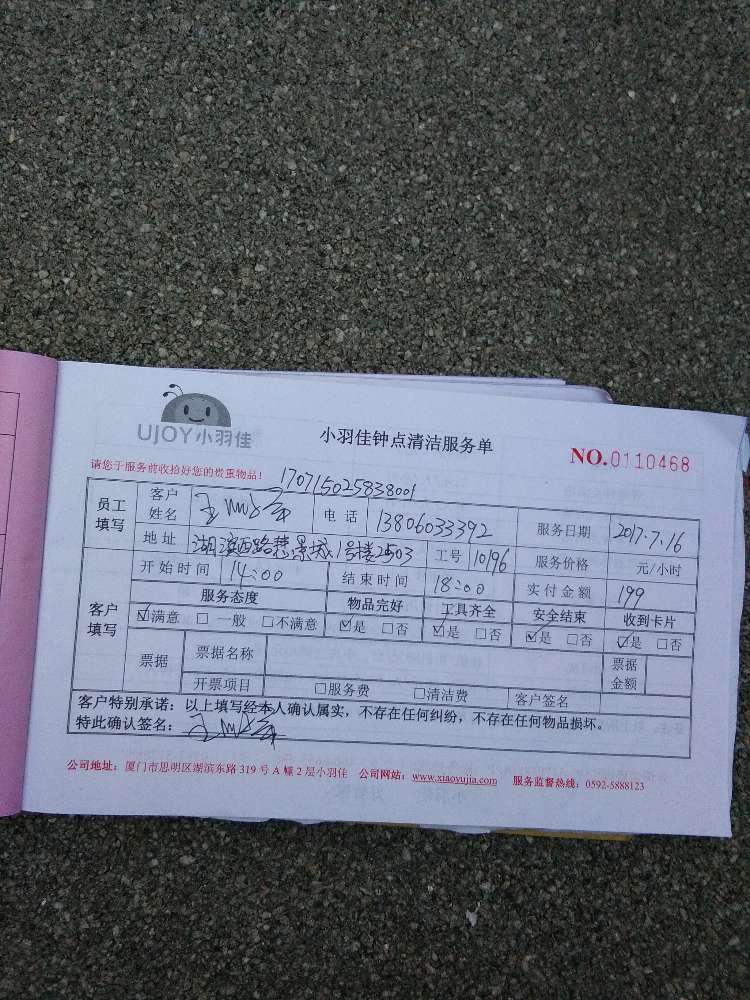 UJOY小羽佳
小羽佳钟点清洁服务单
NO.0110468
请您于服务前收拾好您的贵重物品！ 170715025838001
员工填写 客户姓名 电话 13806033392 服务日期 2017.7.16
地址 湖滨西路慧景城1号楼2503 工号 10196 服务价格 元/小时
客户填写 开始时间 14:00 结束时间 18:00 实付金额 199
服务态度 物品完好 工具齐全 安全结束 收到卡片
☑满意 □一般 □不满意 ☑是 □否 ☑是 □否 ☑是 □否 ☑是 □否
票据 票据名称 票据金额
开票项目 □服务费 □清洁费 客户签名
客户特别承诺：以上填写经本人确认属实，不存在任何纠纷，不存在任何物品损坏。
特此确认签名：
公司地址：厦门市思明区湖滨东路319号A幢2层小羽佳 公司网站：www.xiaoyujia.com 服务监督热线：0592-5888123